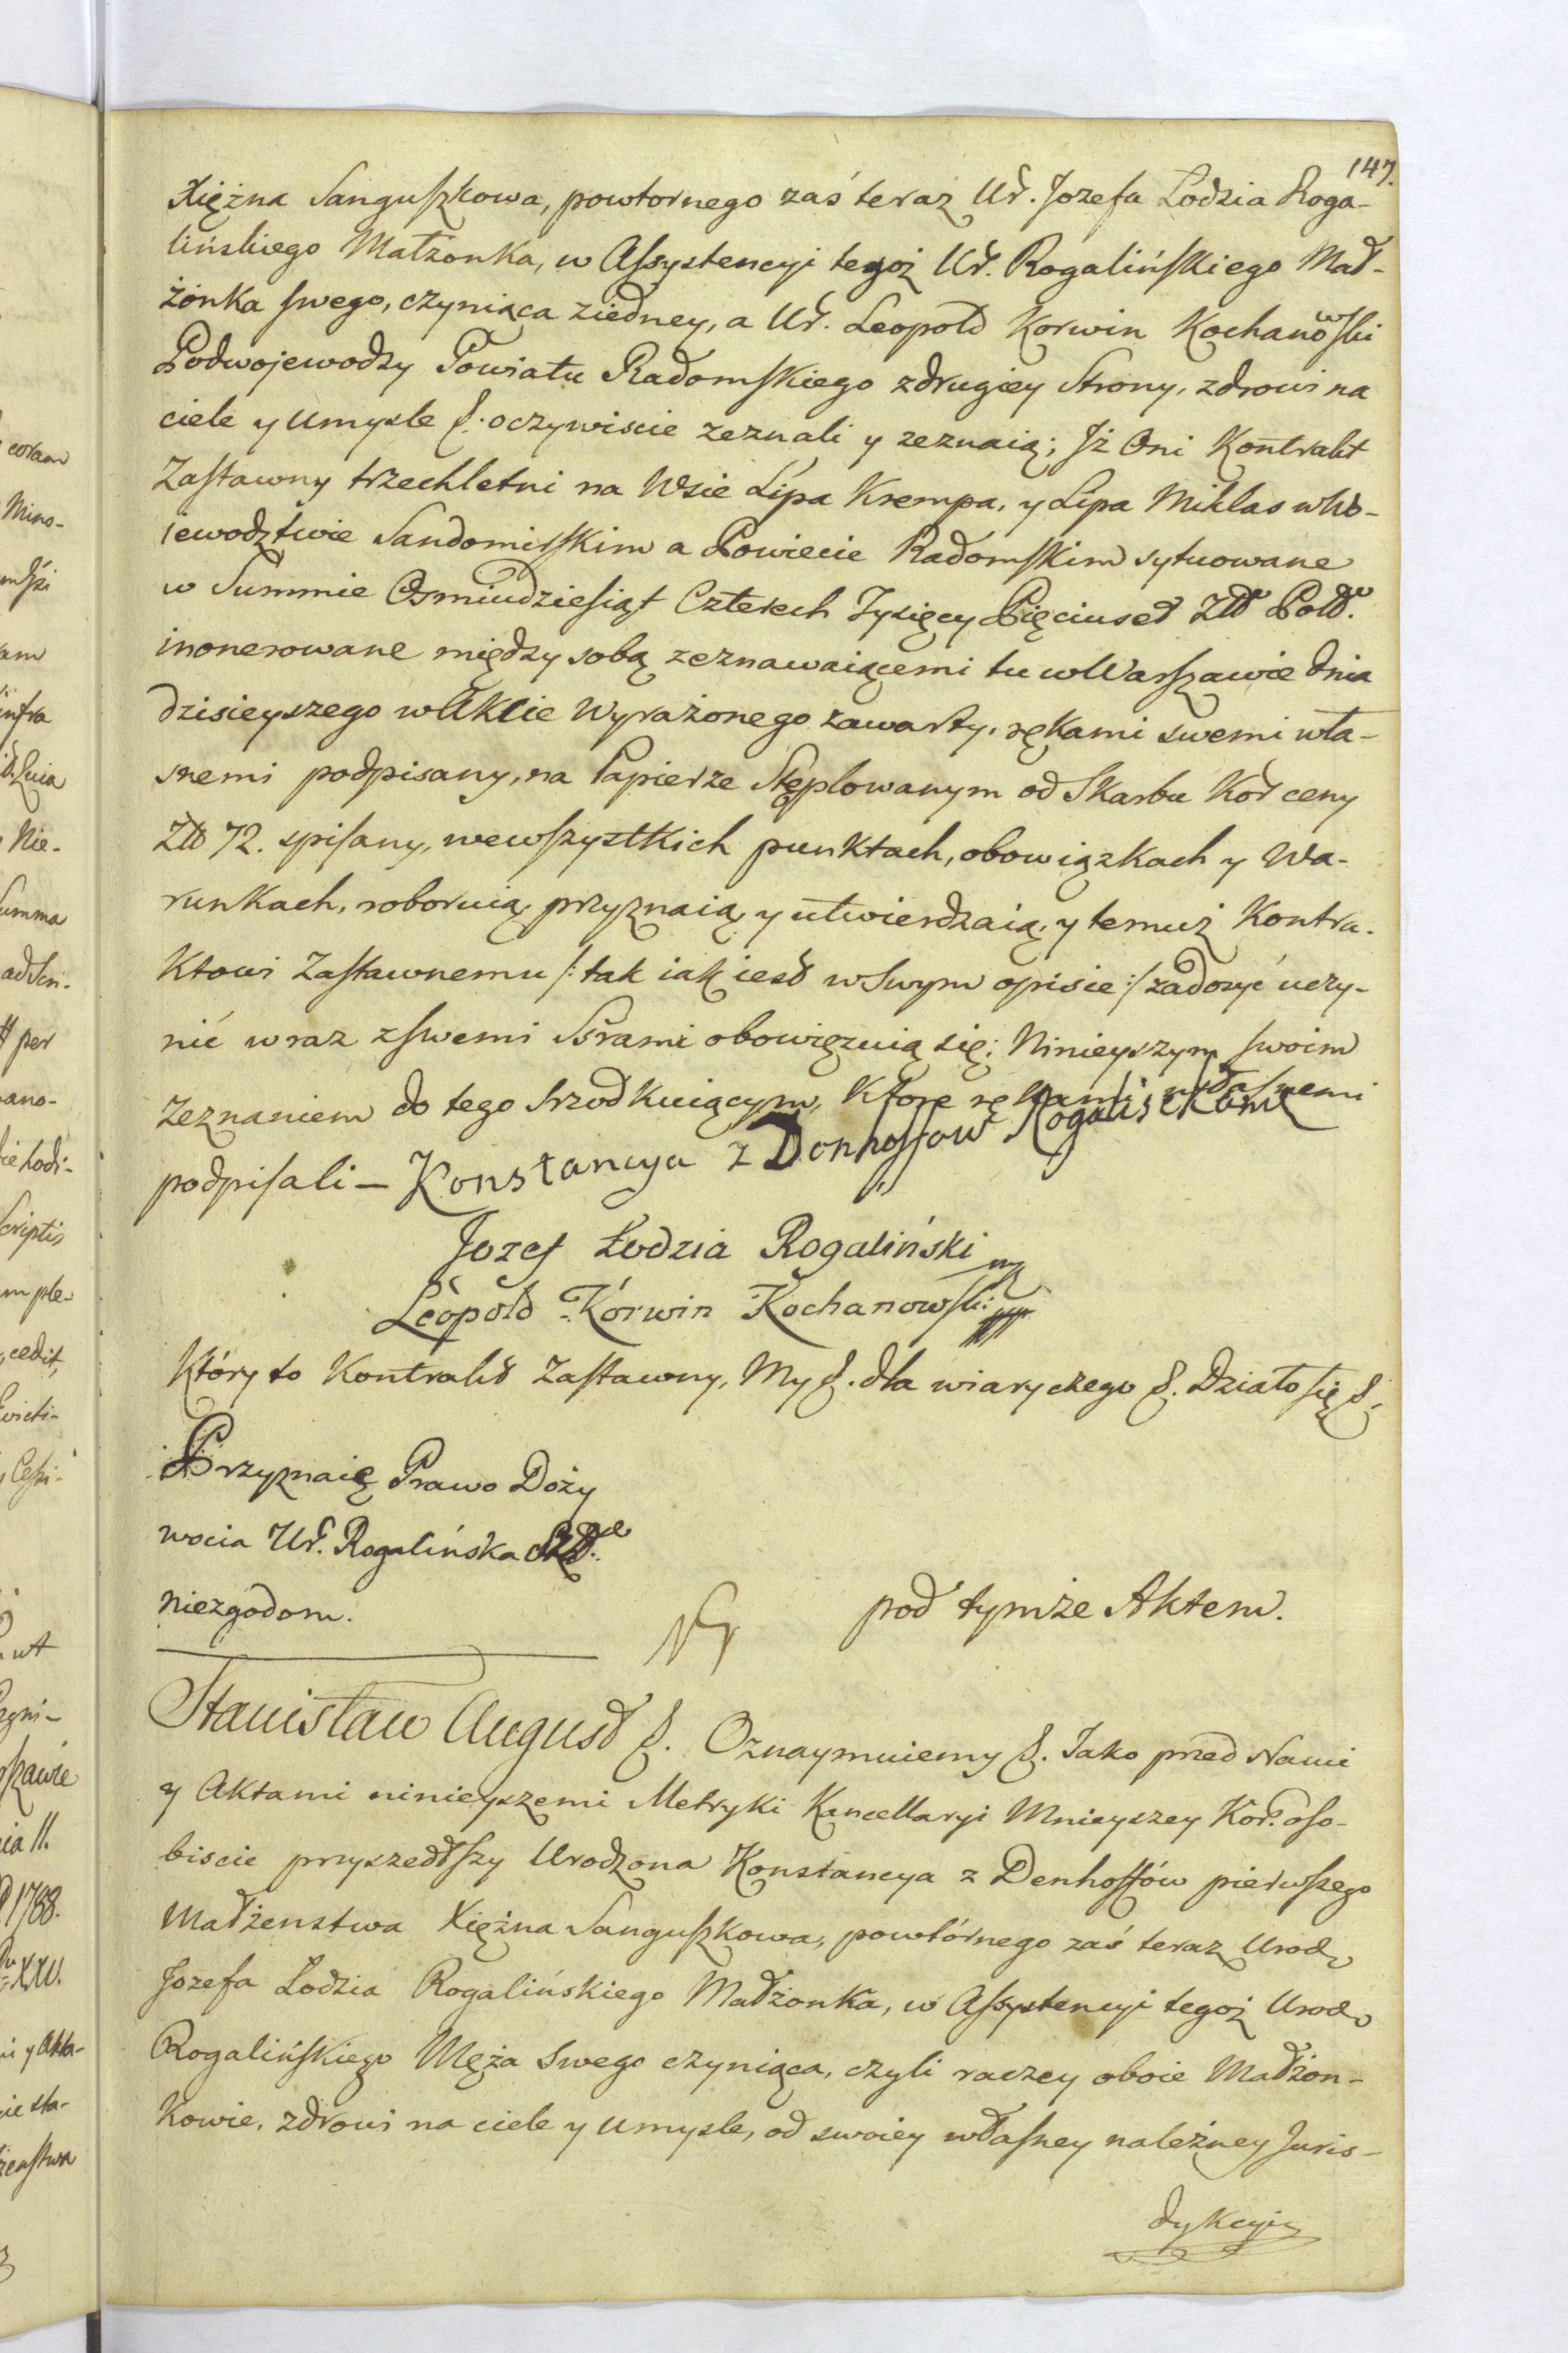 147.
Xiężna Sanguszkowa, powtornego zaś teraz Ur. Jozefa Lodzia Roga-
lińskiego Małżonka, w Assystencyi tegoż Ur. Rogalińskiego Mał-
żonka swego, czyniąca ziedney, a Ur. Leopold Korwin Kochanowski
Podwojewodzy Powiatu Radomskiego zdrugiey Strony, zdrowi na
ciele y umysle &. oczywiscie zeznali y zeznaią; Jż Oni Kontrakt
Zastawny trzechletni na Wsie Lipa Krempa, y Lipa Miklas w Wo-
iewodztwie Sandomirskim a Powiecie Radomskim sytuowane
w Summie Osmiudziesiąt Czterech Tysięcy Pięciuset Złł Poll.
inonerowane między sobą zeznawaiącemi tu w Warszawie dnia
dzisieyszego w Akcie wyrażonego zawarty, rękami swemi wła-
snemi podpisany, na Papierze Stęplowanym od Skarbu Kor ceny
Złł 72. spisany, wewszystkich punktach, obowiązkach y Wa-
runkach, roboruią, przyznaią y utwierdzaią, y temuż Kontra-
ktowi Zastawnemu /: tak iak iest w swym opisie :/ zadosyć uczy-
nić wraz z swemi Ssrami obowięzuią się; Ninieyszym swoim
Zeznaniem do tego srzodkuiącym, Ktore rękami własnemi
podpisali — Konstancya z Denhoffow Rogalinska mp
Jozef Łodzia Rogaliński mp
Leopold Korwin Kochanowski mp
Który to Kontrakt Zastawny, My &. dla wiary czego &. Działo się &.
Przyznaię Prawo Doży
wocia Ur. Rogalińska
niezgodom.
pod tymże Aktem.
Stanisław August &. Oznaymuiemy &. Jako przed Nami
y Aktami ninieyszemi Metryki Kancellaryi Mnieyszey Kor. oso-
biscie przyszedłszy Urodzona Konstancya z Denhoffów pierwszego
Małżenstwa Xiężna Sanguszkowa, powtórnego zaś teraz Urodz
Jozefa Lodzia Rogalińskiego Małżonka, w Assystencyi tegoż Urodz
Rogalińskiego Męża swego czyniąca, czyli raczey oboie Małżon-
kowie, zdrowi na ciele y umysle, od swoiey własney należney Juris-
dykcyi
coram
Mino-
infra
Nie-
Summa
per
ano-
Scriptis
cedit,
ut
1788.
XXV.
y Akta-
sta-
żenstwa